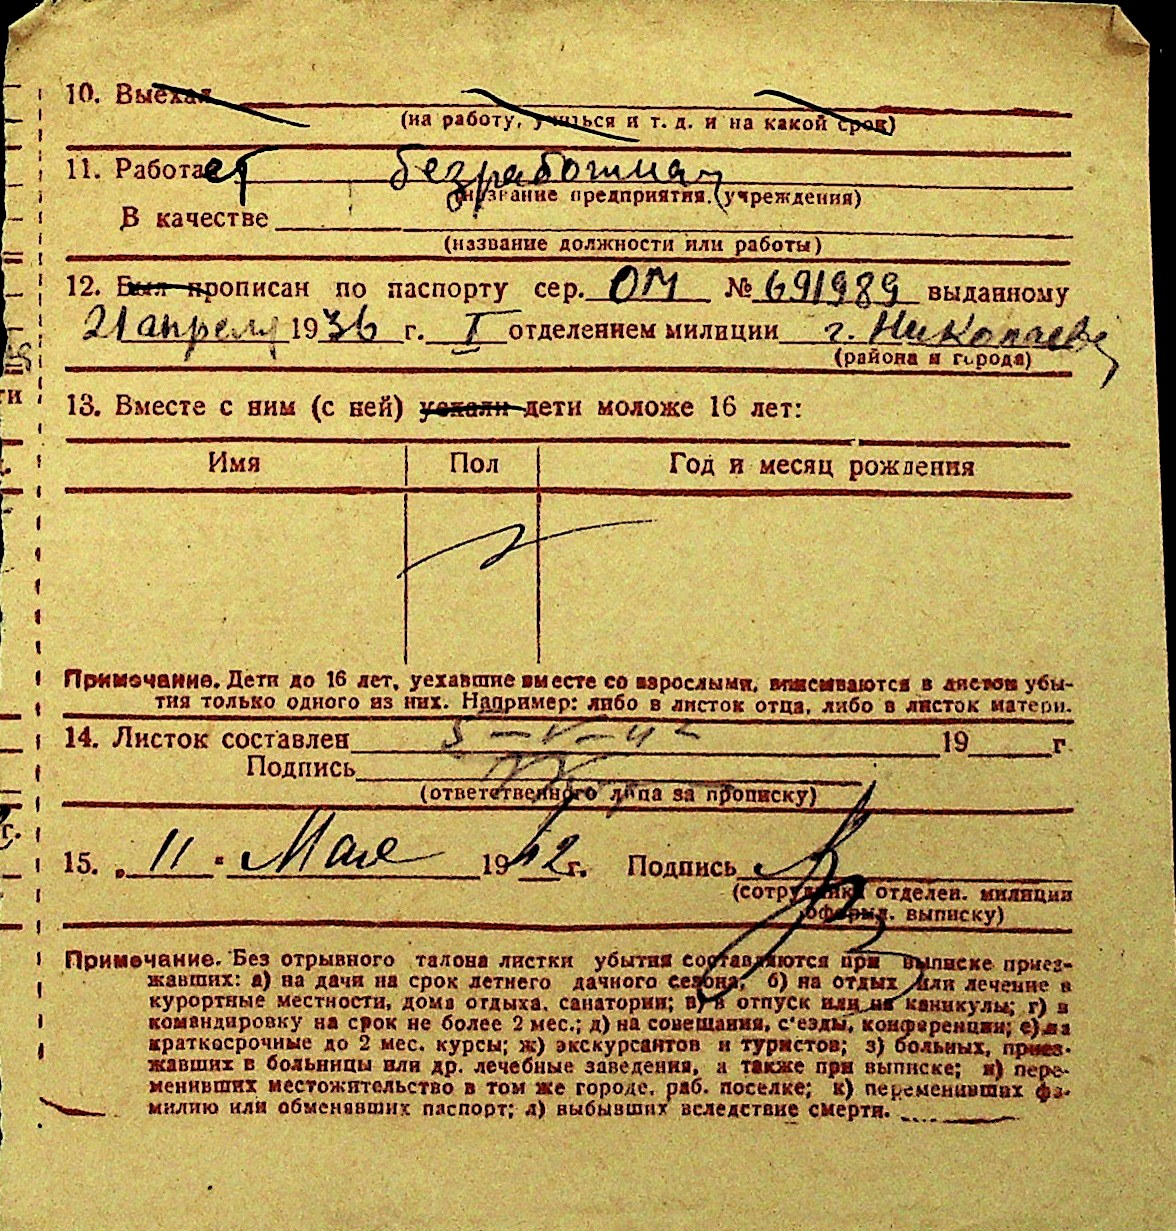 10. Выехал
(на работу, учиться и т. д. и на какой срок)
11. Работает безработная
(название предприятия, учреждения)
В качестве
(название должности или работы)
12. Был прописан по паспорту сер. ОМ № 691989 выданному
21 апреля 1936 г. I отделением милиции г. Николаева
(района и города)
13. Вместе с ним (с ней) уехали дети моложе 16 лет:
Имя Пол Год и месяц рождения
Примечание. Дети до 16 лет, уехавшие вместе со взрослыми, вписываются в листок убы-
тия только одного из них. Например: либо в листок отца, либо в листок матери.
14. Листок составлен 5-V-42 19 г
Подпись
(ответственного лица за прописку)
15. „ 11 " Мая 1942 г. Подпись
(сотрудника отделен. милиции
оформл. выписку)
Примечание. Без отрывного талона листки убытия составляются при выписке приез-
жавших: а) на дачи на срок летнего дачного сезона; б) на отдых или лечение в
курортные местности, дома отдыха, санатории; в) в отпуск или на каникулы; г) в
командировку на срок не более 2 мес.; д) на совещания, с'езды, конференции; е) на
краткосрочные до 2 мес. курсы; ж) экскурсантов и туристов; з) больных, приез-
жавших в больницы или др. лечебные заведения, а также при выписке; и) пере-
менивших местожительство в том же городе, раб. поселке; к) переменивших фа-
милию или обменявших паспорт; л) выбывших вследствие смерти.